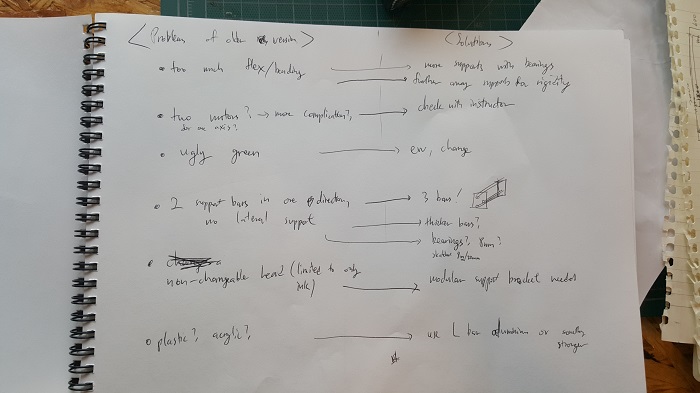 <Problems of older version>
<Solutions>
• too much flex/bending
more supports with bearings
further away supports for rigidity
• two motors? → more complication?,
for one axis?
check with instructor
• ugly green
ew, change
• 2 support bars in one direction,
no lateral support
3 bars!
thicker bars?
bearings?, 8mm?
• non-changeable head (limited to only
ink)
modular support bracket needed
• plastic?, acrylic?,
use L bar aluminium or something
stronger